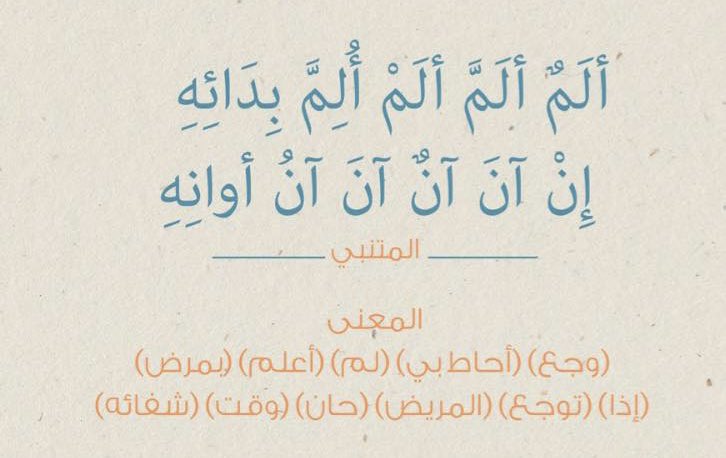 ألَمٌ ألَمَّ ألَمْ أُلِمَّ بِدَائِهِ
إِنْ آنَ آنٌ آنَ آنُ أوانِهِ
المتنبي
المعنى
(وجع) (أحاط بي) (لم) (أعلم) (بمرض)
(إذا) (توجّع) (المريض) (حان) (وقت) (شفائه)